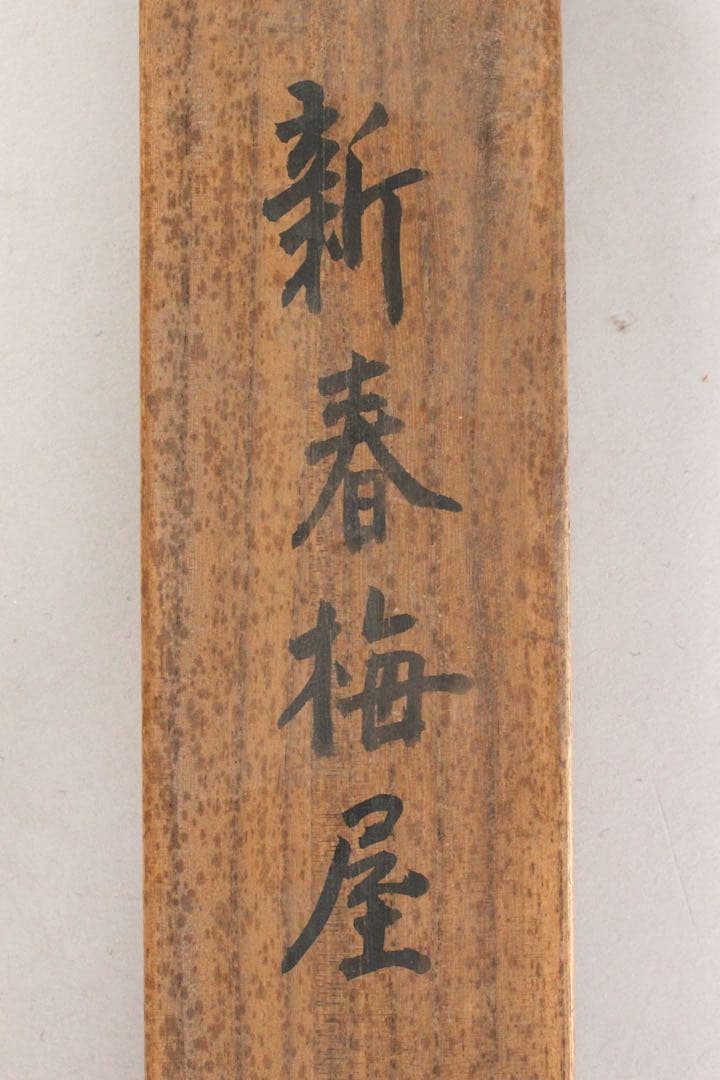 新春梅屋